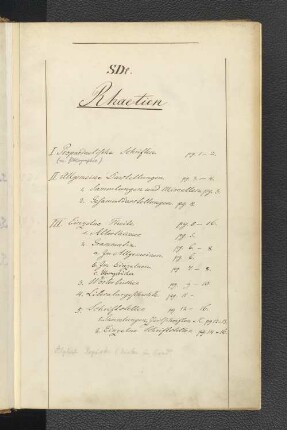 SDr.
Rhaetien
I Propädeutische Schriften pg. 1-2.
II Allgemeine Darstellungen pg. 2-4.
1. Sammlungen und Miscellen pg. 3.
2. Gesamtdarstellungen pg. 4
III Einzelne Theile pg. 5-16.
1. Altertümer pg. 5.
2. Grammatik pg. 6-8
a. Im Allgemeinen pg. 6.
b. Im Einzelnen pg. 7-8.
3. Wörterbücher pg. 9-10.
4. Literaturgeschichte pg. 11-
5. Schriftsteller pg. 12-16.
b. Einzelne Schriftsteller pg. 14-16.